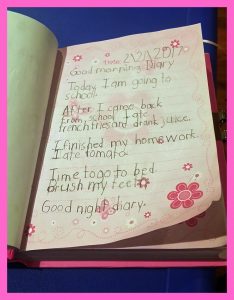 Date: 2/21/2017
Good morning Diary
Today, I am going to
school.
After I came back
from school I ate
french fries and drank juice.
I finished my homework.
I ate tomato.
Time to go to bed.
brush my teeth.
Good night diary.